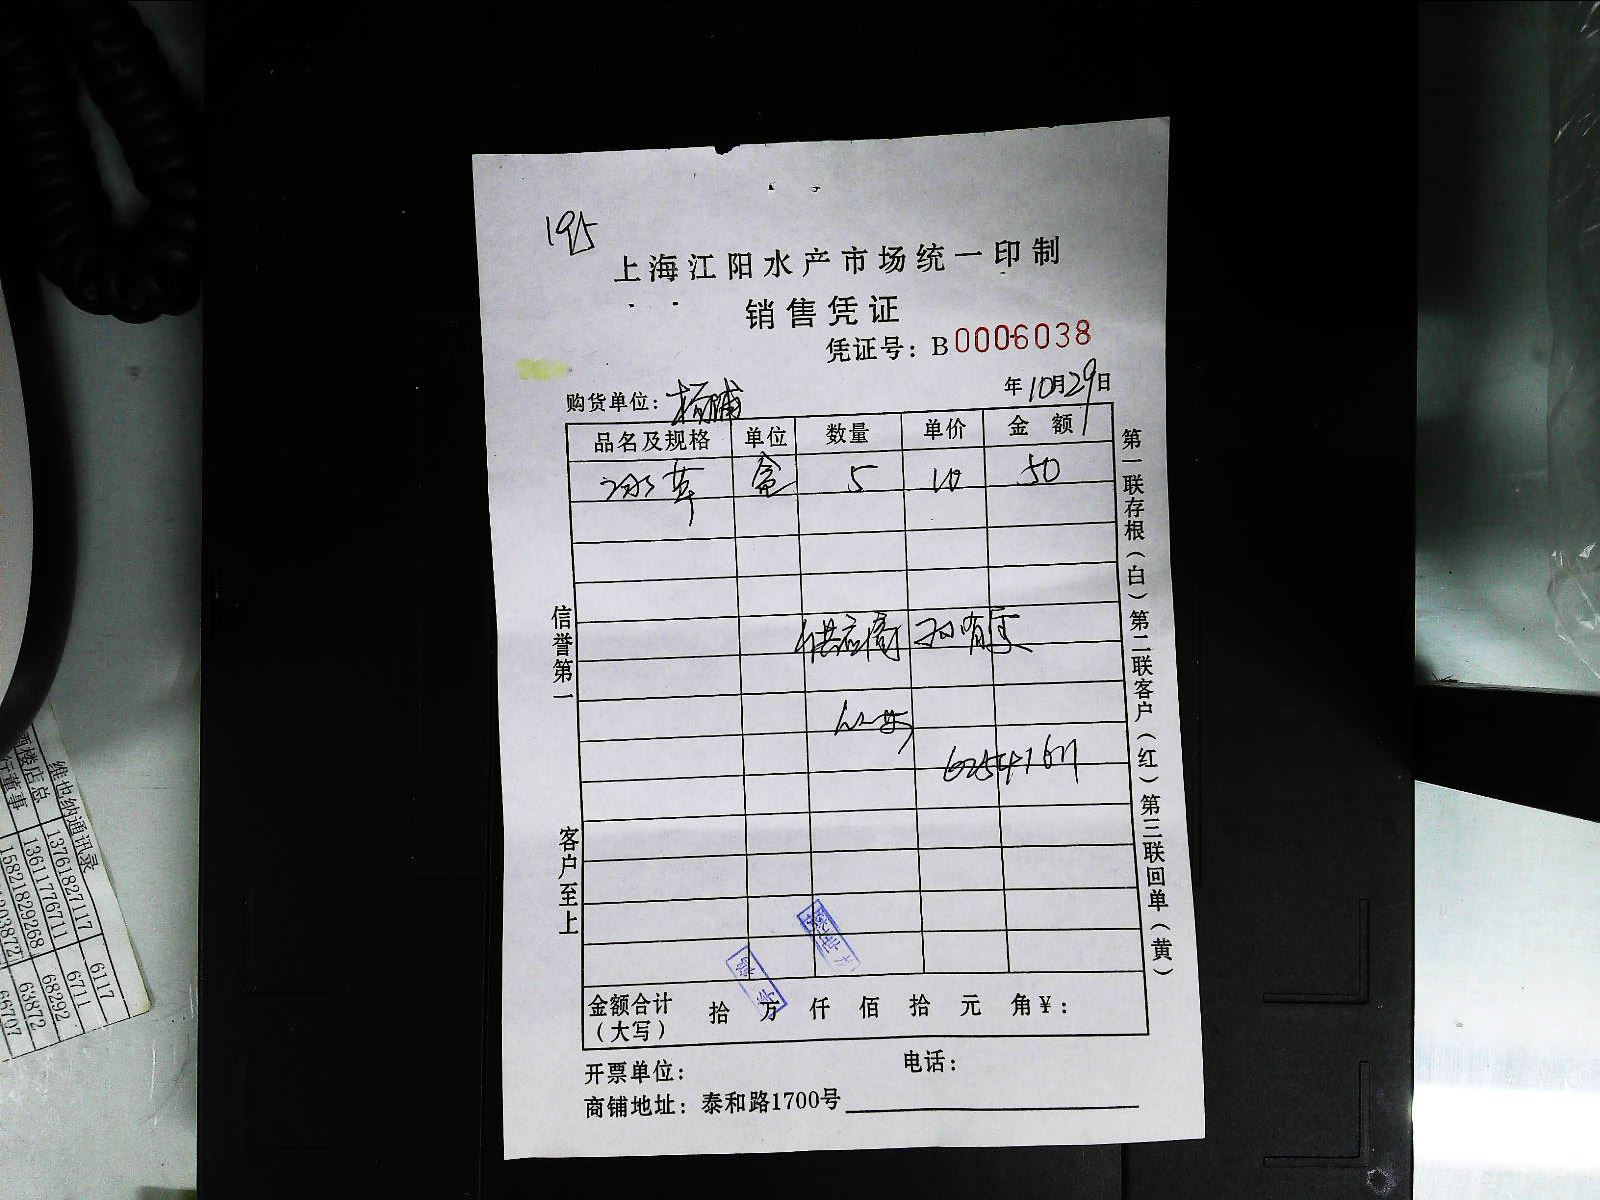 195
上海江阳水产市场统一印制
销售凭证
凭证号：B0006038
购货单位：杨浦
年10月29日
品名及规格 单位 数量 单价 金额
冰草 盒 5 10 50
供应商
信誉第一
客户至上
第一联存根（白）第二联客户（红）第三联回单（黄）
金额合计（大写） 拾 万 仟 佰 拾 元 角 ¥：
开票单位： 电话：
商铺地址：泰和路1700号
维也纳通讯录
13761827117 6117
13611776711 6711
15821829268 68292
63872
66707